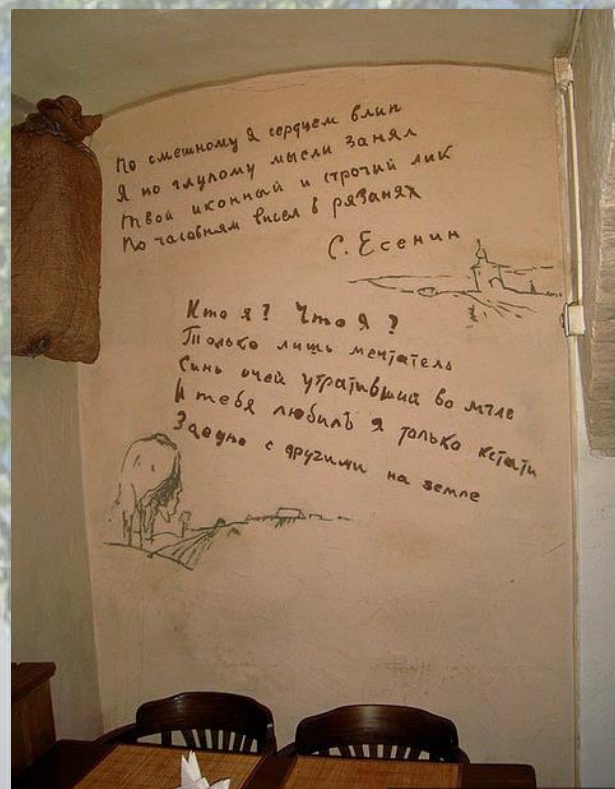 По смешному я сердцем влип
Я по глупому мысли занял
Твой иконный и строгий лик
По часовням висел в рязанях
С. Есенин
Кто я? Что я?
Только лишь мечтатель
Синь очей утративший во мгле
И тебя любилъ я только кстати
Заодно с другими на земле